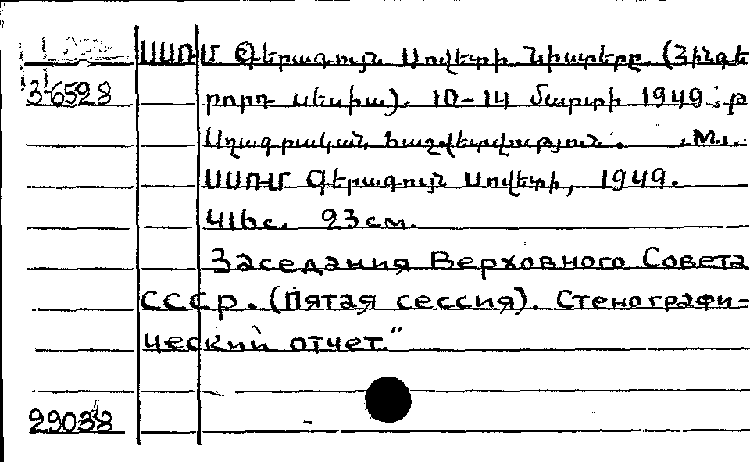 ՍՍՌՄ Գերագույն Սովետի Նիստերը (Հինգե
36528 րորդ սեսիա). 10-14 մարտի 1949 թ
Սղագրական հաշվետվություն. М.
ՍՍՌՄ Գերագույն Սովետի, 1949.
416с. 23см.
Заседания Верховного Совета
СССР. (Пятая сессия). Стенографи-
ческий отчет."
29038